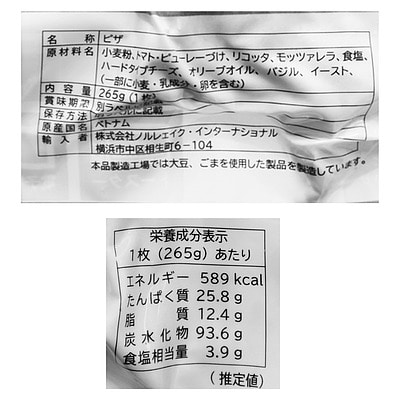 名称 ピザ
原材料名 小麦粉、トマト・ピューレーづけ、リコッタ、モッツァレラ、食塩、
ハードタイプチーズ、オリーブオイル、バジル、イースト、
(一部に小麦・乳成分・卵を含む)
内容量 265g(1枚)
賞味期限 別ラベルに記載
保存方法 別ラベルに記載
原産国名 ベトナム
輸入者 株式会社ノルレェイク・インターナショナル
横浜市中区相生町6-104
本品製造工場では大豆、ごまを使用した製品を製造しています。
栄養成分表示
1枚(265g)あたり
エネルギー 589 kcal
たんぱく質 25.8 g
脂質 12.4 g
炭水化物 93.6 g
食塩相当量 3.9 g
(推定値)